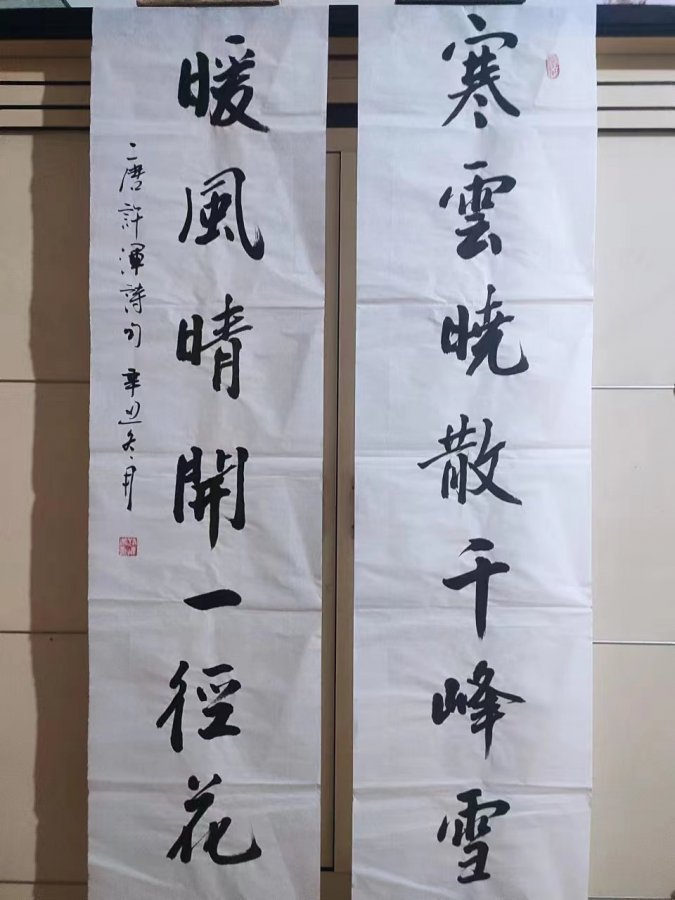 寒雲曉散千峰雪
暖風晴開一徑花
唐許渾詩句 辛丑冬月